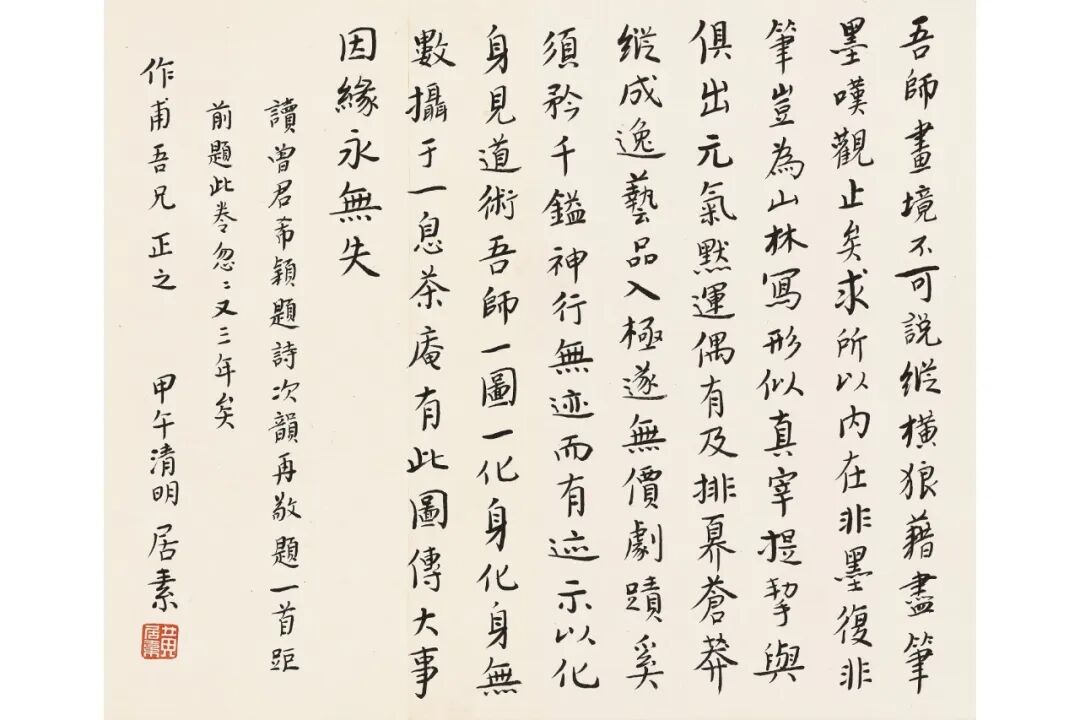 吾師畫境不可説縱橫狼藉盡筆
墨嘆觀止矣求所以内在非墨復非
筆豈為山林寫形似真宰提挈與
俱出元氣默運偶有及排奡蒼莽
縱成逸藝品入極遂無價劇蹟奚
須矜千鎰神行無迹而有迹示以化
身見道術吾師一圖一化身化身無
數攝于一息茶庵有此圖傳大事
因緣永無失
讀曾君希穎題詩次韻再敬題一首距
前題此卷忽〻又三年矣
作甫吾兄正之 甲午清明 居素
黃居素